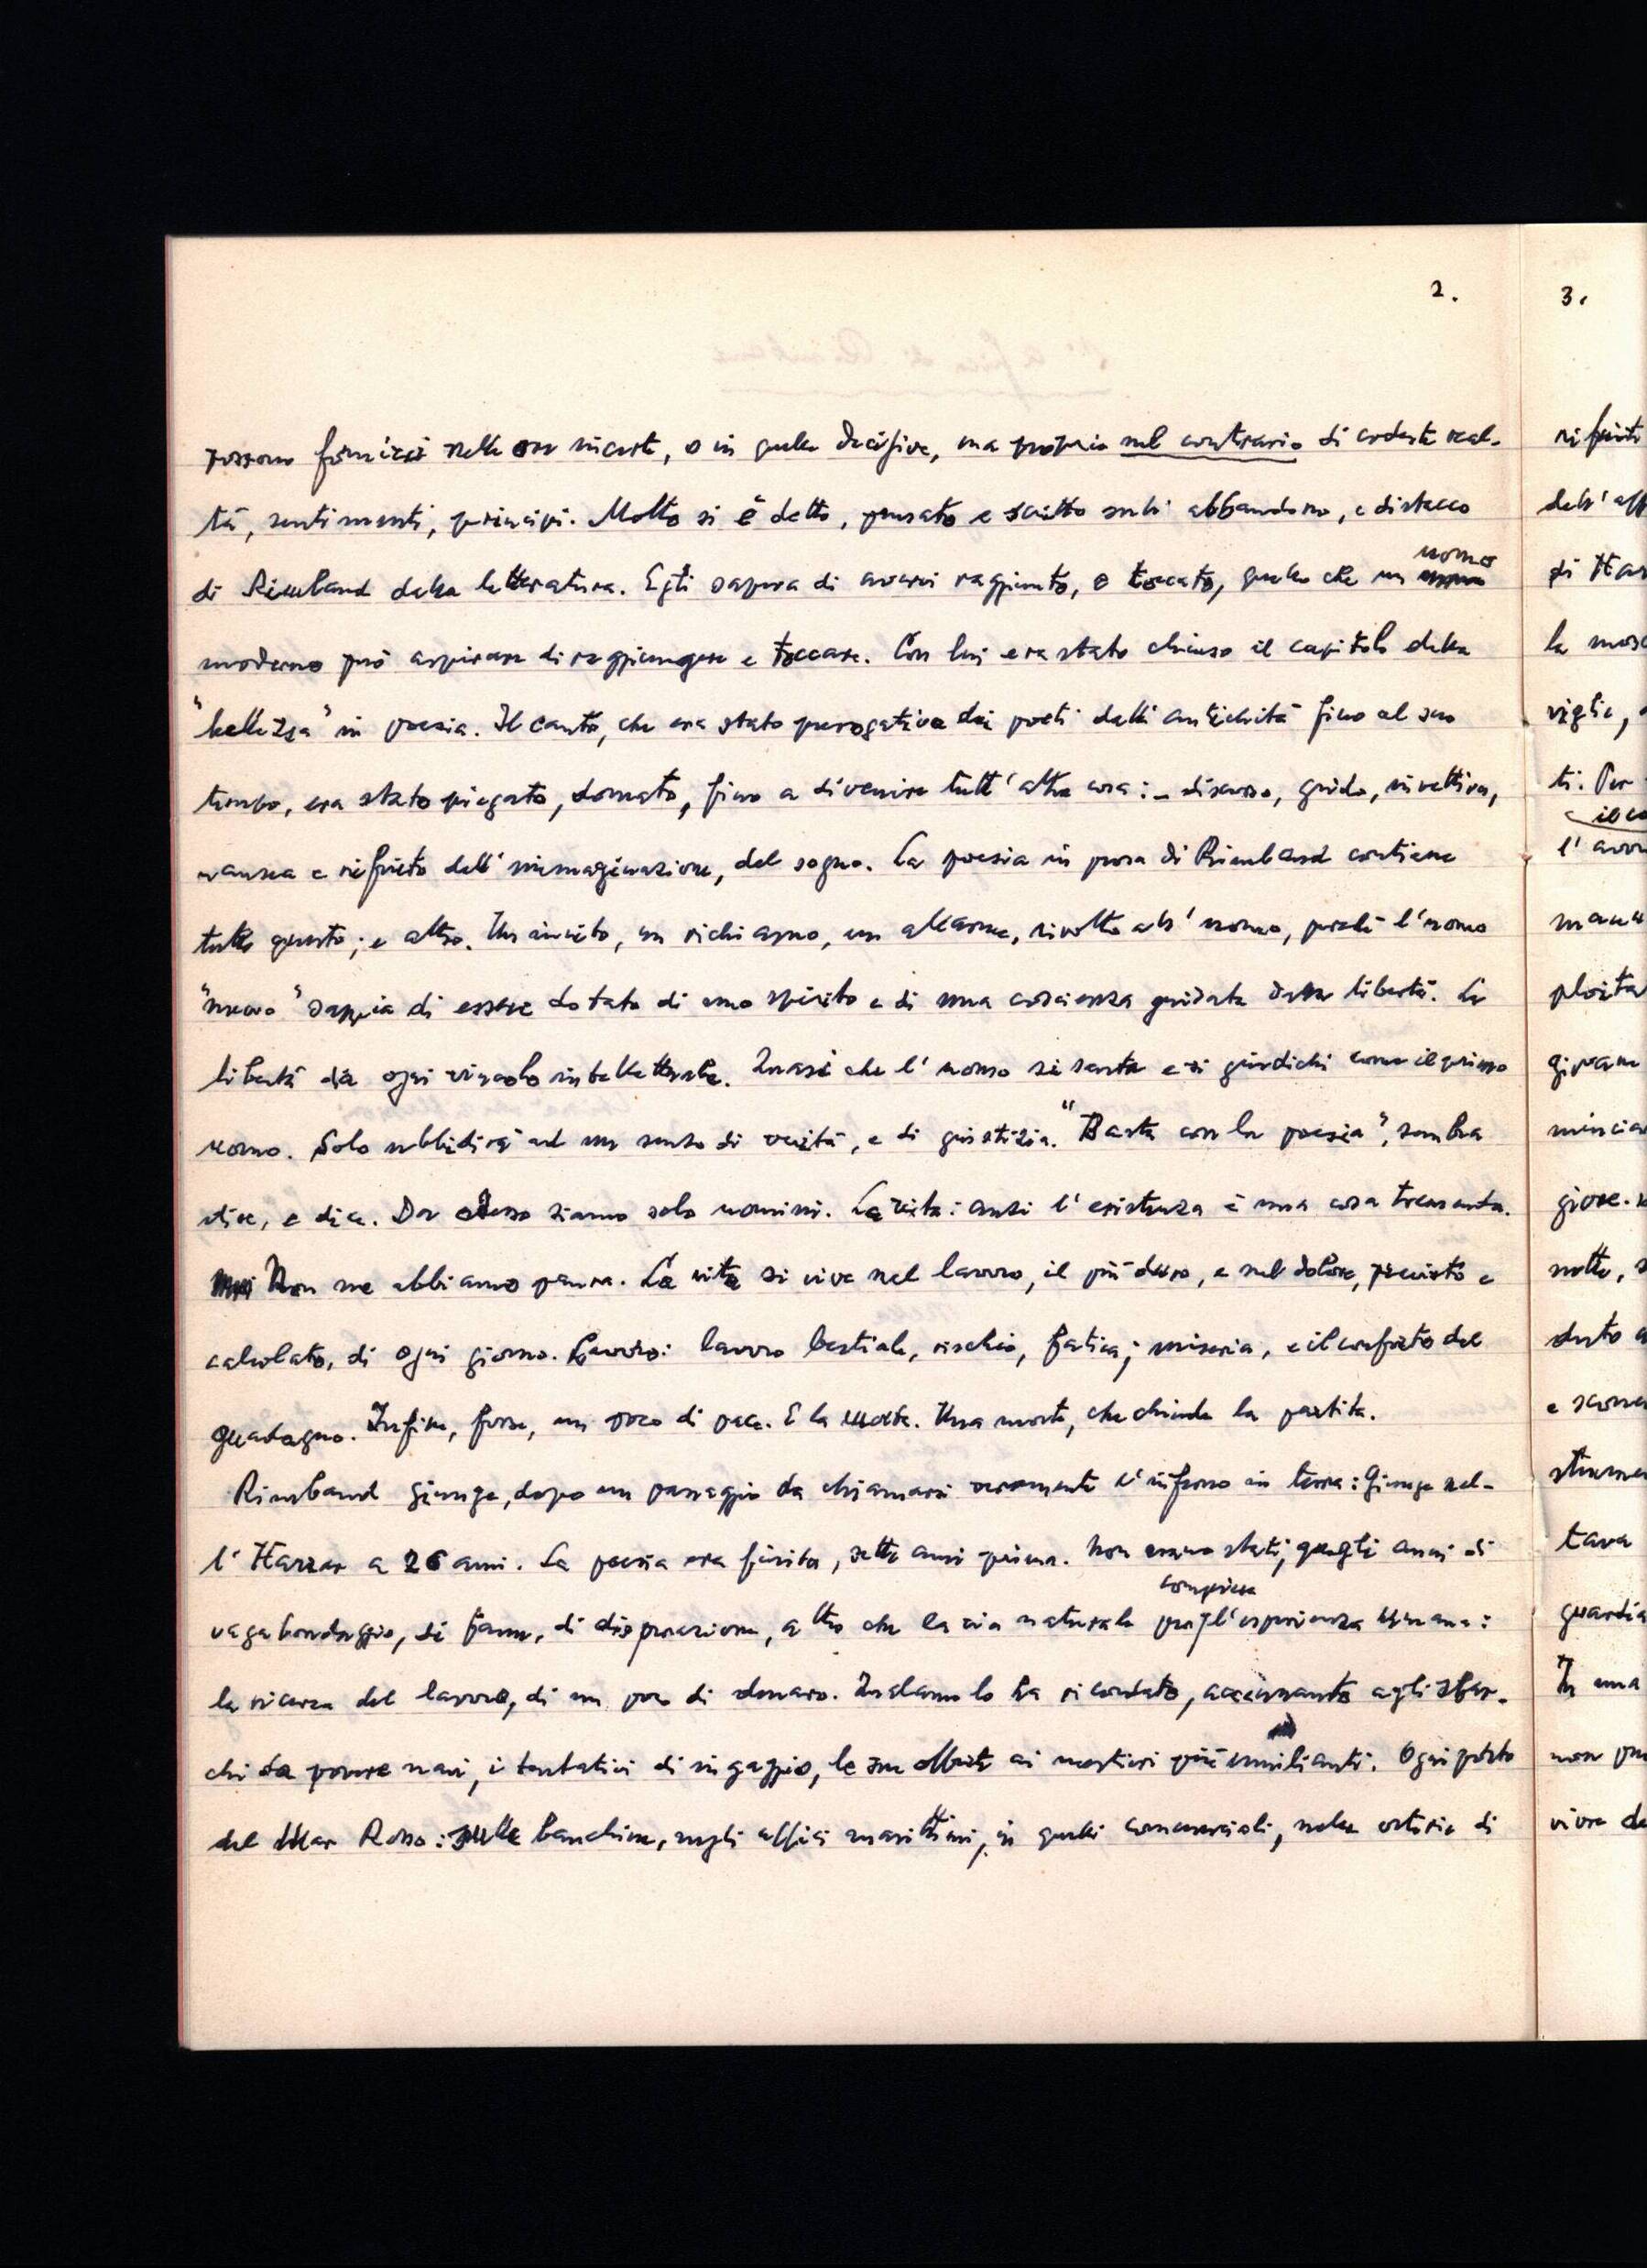 2.
possono fornirci nelle ore incerte, o in quelle decisive, ma proprio nel contrario di codeste real-
tà, sentimenti, principi. Molto si è detto, pensato e scritto sull' abbandono, e distacco
di Rimbaud dalla letteratura. Egli sapeva di averci raggiunto, e toccato, quello che un uomo
moderno può aspirare di raggiungere e toccare. Con lui era stato chiuso il capitolo della
"bellezza" in poesia. Il canto, che era stato prerogativa dei poeti dall'antichità fino al suo
tempo, era stato piegato, domato, fino a divenire tutt'altra cosa: - discorso, grido, invettiva,
nausea e rifiuto dell'immaginazione, del sogno. La poesia in prosa di Rimbaud contiene
tutto questo; e altro. Un invito, un richiamo, un allarme, rivolto all'uomo, perché l'uomo
"nuovo" sappia di essere dotato di uno spirito e di una coscienza guidata dalla libertà. La
libertà da ogni vincolo intellettuale. Quasi che l'uomo si senta e si giudichi come il primo
uomo. Solo ubbidirà ad un senso di verità, e di giustizia. "Basta con la poesia", sembra
dire, e dice. Da adesso siamo solo uomini. La vita: anzi l'esistenza è una cosa tremenda.
Non ne abbiamo paura. La vita si vive nel lavoro, il più duro, e nel dolore, previsto e
calcolato, di ogni giorno. Lavoro: lavoro bestiale, rischio, fatica; miseria, e il conforto del
guadagno. Infine, forse, un poco di pace. E la morte. Una morte, che chiude la partita.
Rimbaud giunge, dopo un passaggio da chiamarsi veramente l'inferno in terra: Giunge nel-
l'Harrar a 26 anni. La poesia era finita, sette anni prima. Non erano stati, quegli anni di
compiuta
vagabondaggio, di fame, di disperazione, altro che la via naturale per l'esperienza umana:
la ricerca del lavoro, di un poco di denaro. lo ha ricordato, accennando agli sbar-
chi da povere navi, i tentativi di ingaggio, le sue offerte ai mestieri più umilianti. Ogni porto
del Mar Rosso: sulle banchine, negli uffici marittimi, in quelli commerciali, nelle osterie di
3.
rifiuti
dell'aff
di Har
la mosc
viglie,
ti. Per
il co
l'avv
manu
ploita
giovane
mincia
giore.
notte, s
duto
e scorre
strume
tava
guardia
In una
non pu
vivre de